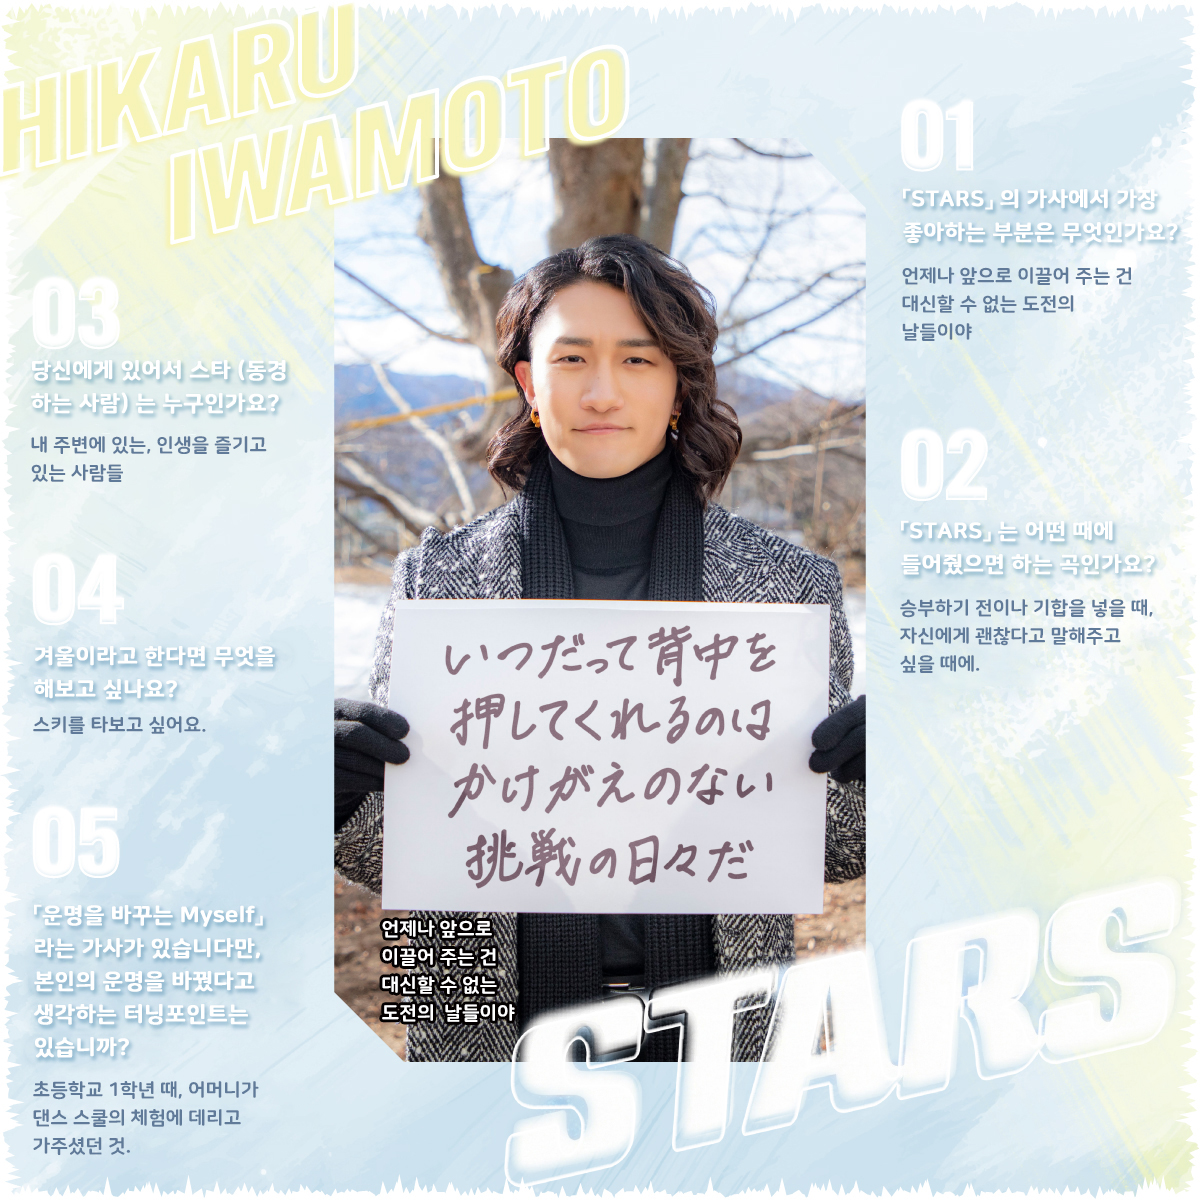 HIKARU
IWAMOTO
01
「STARS」의 가사에서 가장
좋아하는 부분은 무엇인가요?
언제나 앞으로 이끌어 주는 건
대신할 수 없는 도전의
날들이야
02
「STARS」는 어떤 때에
들어줬으면 하는 곡인가요?
승부하기 전이나 기합을 넣을 때,
자신에게 괜찮다고 말해주고
싶을 때에.
03
당신에게 있어서 스타 (동경
하는 사람) 는 누구인가요?
내 주변에 있는, 인생을 즐기고
있는 사람들
04
겨울이라고 한다면 무엇을
해보고 싶나요?
스키를 타보고 싶어요.
05
「운명을 바꾸는 Myself」
라는 가사가 있습니다만,
본인의 운명을 바꿨다고
생각하는 터닝포인트는
있습니까?
초등학교 1학년 때, 어머니가
댄스 스쿨의 체험에 데리고
가주셨던 것.
いつだって背中を
押してくれるのは
かけがえのない
挑戦の日々だ
언제나 앞으로
이끌어 주는 건
대신할 수 없는
도전의 날들이야
STARS